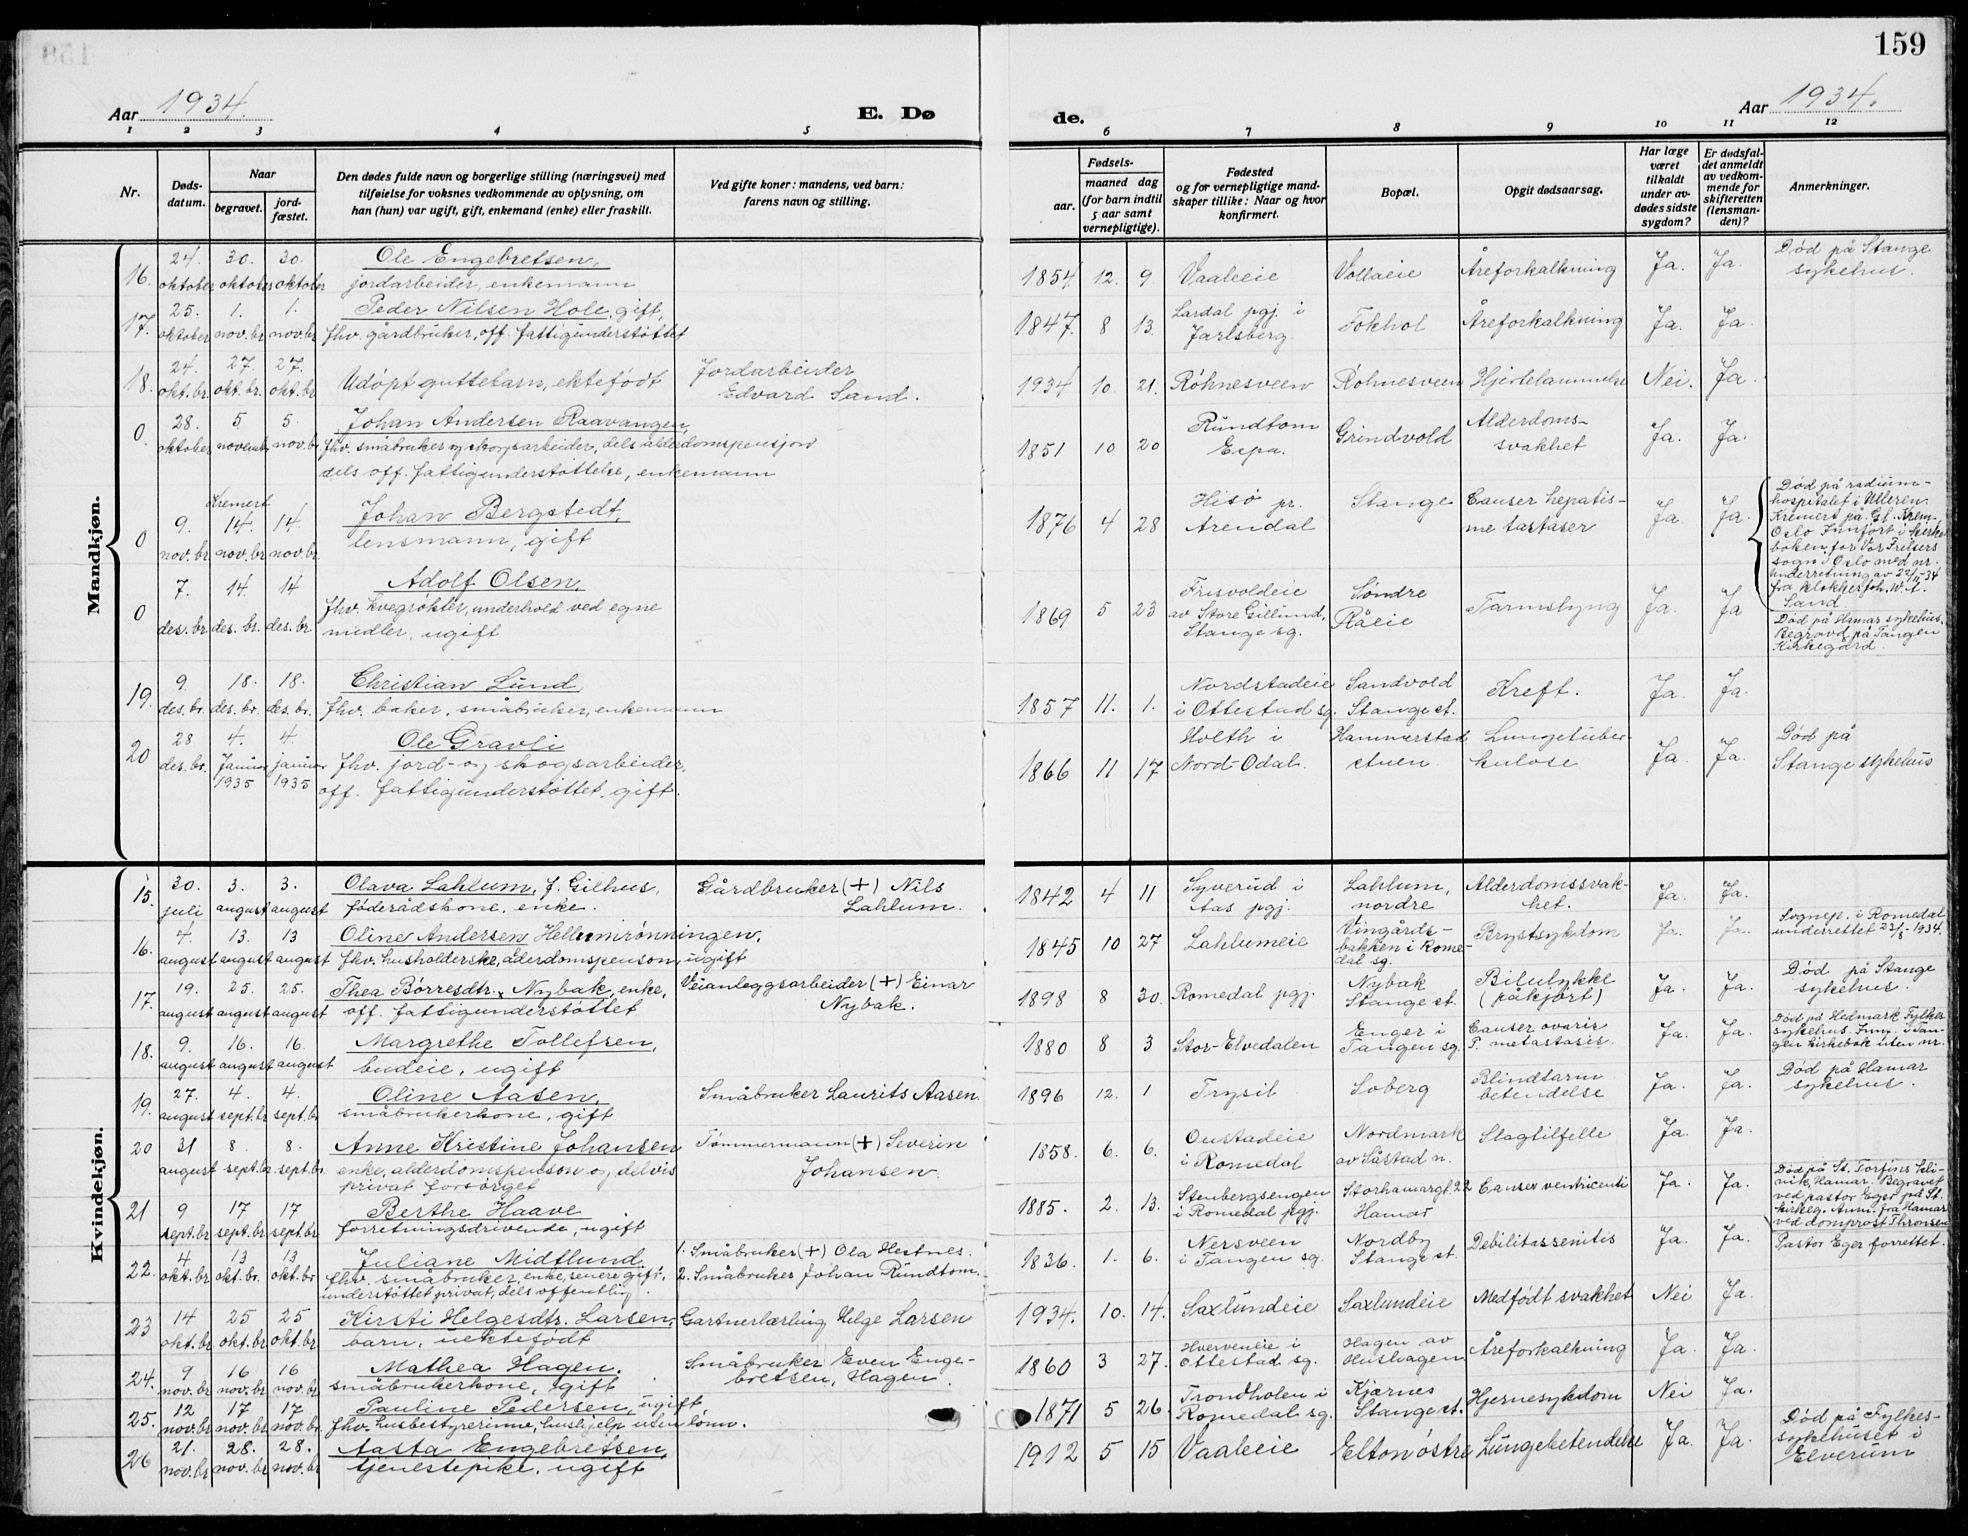 159
Aar 1934.
E. Dø
de.
Aar 1934.
1 2 3 4 5 6 7 8 9 10 11 12
Nr.
Døds-
datum.
Naar
begravet.
jord-
fæstet.
Den dødes fulde navn og borgerlige stilling (næringsvei) med
tilføielse for voksnes vedkommende av oplysning, om
han (hun) var ugift, gift, enkemand (enke) eller fraskilt.
Ved gifte koner: mandens, ved barn:
farens navn og stilling.
Fødsels-
aar.
maaned dag
(for barn indtil
5 aar samt
vernepligtige).
Fødested
og for vernepligtige mand-
skaper tillike: Naar og hvor
konfirmert.
Bopæl.
Opgit dødsaarsag.
Har læge
været
tilkaldt
under av-
dødes sidste
sygdom?
Er dødsfal-
det anmeldt
av vedkom-
mende for
skifteretten
(lensman-
den)?
Anmerkninger.
Mandkjøn.
16. 24. oktober 30. oktober 30. oktober
Ole Engebretsen,
jordarbeider, enkemann
1854 12. 9. Vaaleeie Vollaeie Åreforkalkning Ja. Ja.
Død på Stange
sykehus.
17. 25. oktober 1. nov.br 1. nov.br
Peder Nilsen Hole, gift,
fhv. gårdbruker, off. fattigunderstøttet
1847. 8 13.
Lardal pgj. i
Jarlsberg.
Fokhol Åreforkalkning Ja. Ja.
18. 24. okt.br. 27. okt.br. 27. okt.br.
Udøpt guttebarn, ektefødt
Jordarbeider
Edvard Sand.
1934 10. 21. Røhnesveen Røhnesveen Hjertelammelse Nei. Ja.
0. 28. oktober 5 novemb 5. nov.b
Johan Andersen Raavangen,
fhv. småbruker og skogsarbeider, dels alderdomspensjon
dels off. fattigunderstøttelse, enkemann
1851 10 20
Rundtom
Espa.
Grindvold
Alderdoms-
svakhet
Ja. Ja.
Kremert
0 9. nov.br 14. nov.br 14 nov.br
Johan Bergstedt,
lensmann, gift
1876 4 28
Hisø pr.
Arendal
Stange
Causer hepatis-
me tastaser
Ja. Ja.
Død på radium-
hospitalet i Ulleren.
Kremert på Gl. Krem.
Oslo Innført i kirke
boken for Vor Frelsers
sogn i Oslo med nr.
Underretning av 22/11-34
fra klokker Joh. W. A.
Sand.
0 7. des.br 14. des.br. 14 des.br
Adolf Olsen,
fhv. kvegrøkter, underhold ved egne
midler, ugift
1869 5 23
Frisvoldeie
av Store Gillund,
Stange sg.
Søndre
Råeie
Tarmslyng Ja. Ja
Død på Hamar sykehus.
Begravd på Tangen
Kirkegård.
19. 9. des.br. 18. des.br. 18. des.br.
Christian Lund,
fhv. baker, småbruker, enkemann
1857 11. 1.
Nordstadeie
i Ottestad sg.
Sandvold
Stange st.
Kreft. Ja. Ja.
20 28 des.br. 4. Januar 1935 4. januar 1935
Ole Gravli
fhv. jord- og skogsarbeider,
off. fattigunderstøttet, gift.
1866 11 17
Holth i
Nord-Odal.
Hammerstad
stuen.
Lungetuber
kulose
Ja. Ja.
Død på
Stange sykehus
Kvindekjøn.
15. 30. juli 3. august 3. august
Olava Lahlum, f. Gilhus,
føderådskone, enke.
Gårdbruker (+) Nils
Lahlum.
1842 4 11
Syverud i
Aas pgj.
Lahlum,
nordre
Alderdomssvak-
het.
Ja. Ja.
16. 4. august 13. august 13 august
Oline Andersen Hellumrønningen,
fhv. husholderske, alderdomspension, ugift
1845 10 27 Lahlumeie
Vingårds-
bakken i Rome-
dal sg.
Brystsykdom Ja. Ja.
Sognep. i Romedal
underrettet 23/8-1934.
17. 19. august 25. august 25. august
Thea Børresdtr. Nybak, enke,
off. fattigunderstøttet
Veianleggsarbeider (+) Einar
Nybak.
1898 8 30. Romedal pgj.
Nybak
Stange st.
Bilulykke
(påkjørt)
Ja. Ja.
Død på Stange
sykehus.
18. 9. august 16. august 16. august
Margrethe Tollefsen,
budeie, ugift
1880 8 3 Stor-Elvedalen
Enger i
Tangen sg.
Causer ovarie
P. metastasis.
Ja. Ja.
Død på Hedmark Fylkes
sykehus. Innf. i Tan-
gen kirkebok uten nr.
19. 27. august 4. sept.br 4. sept.br
Oline Aasen,
småbrukerkone, gift
Småbruker Laurits Aasen.
1896 12. 1 Trysil Soberg
Blindtarm
betendelse
Ja. Ja.
Død på Hamar
sykehus.
20 31 august 8. sept.br 8. sept.br
Anne Kristine Johansen
enke, alderdomspension og delvis
privat forsørget
Tømmermann (+) Severin
Johansen.
1858. 6. 6.
Oustadeie
i Romedal
Nordmark
av Såstad n.
Slagtilfelle Ja. Ja.
21 9 sept.br 17 sept.br 17 sept.br
Berthe Haave
forretningsdrivende, ugift
1885. 2. 13.
Stenbergsengen
i Romedal pgj.
Storhamargt. 22
Hamar
Causer ventricenti Ja. Ja.
Død på St. Torfins kli-
nik, Hamar. Begravet
ved pastor Eger på St.
kirkeg. Anm. fra Hamar
ved domprost Thronsen
Pastor Eger forrettet.
22. 4. okt.br 13 okt.br. 13 okt.br
Juliane Midtlund
fhv. småbruker, enke, senere gift,
understøttet privat, dels offentlig.
1. Småbruker (+) Ola Hestnes.
2. Småbruker Johan Rundtom.
1836. 1. 6.
Nersveen
i Tangen sg.
Nordby
Stange st.
Debilitassenilis Ja. Ja.
23 14 okt.br. 25 okt.br. 25 okt.br
Kirsti Helgesdtr. Larsen,
barn, uektefødt
Gartnerlærling Helge Larsen
1934. 10. 14. Saxlundeie Saxlundeie Medfødt svakhet Nei Ja.
24. 9 nov.br 16 nov.br 16 nov.br
Mathea Hagen.
småbrukerkone, gift
Småbruker Even Enge-
bretsen, Hagen.
1860 3 27.
Hverveneie i
Ottestad sg.
Hagen av
Hushagen
Åreforkalkning Ja. Ja.
25. 12 nov.br 17 nov.br 17 nov.br
Pauline Pedersen, ugift,
fhv. husbestyrerinne, hushjelp uten lønn.
1871 5 26.
Trondholen i
Romedal sg.
Kjærnes
Stange st.
Hjernesykdom Nei Ja.
26 21. nov.br 28. nov.br 28. nov.br
Aasta Engebretsen,
tjenestepike, ugift
1912 5 15 Vaaleeie Elton østre Lungebetendelse Ja. Ja.
Død på Fylkes-
sykehuset i
Elverum